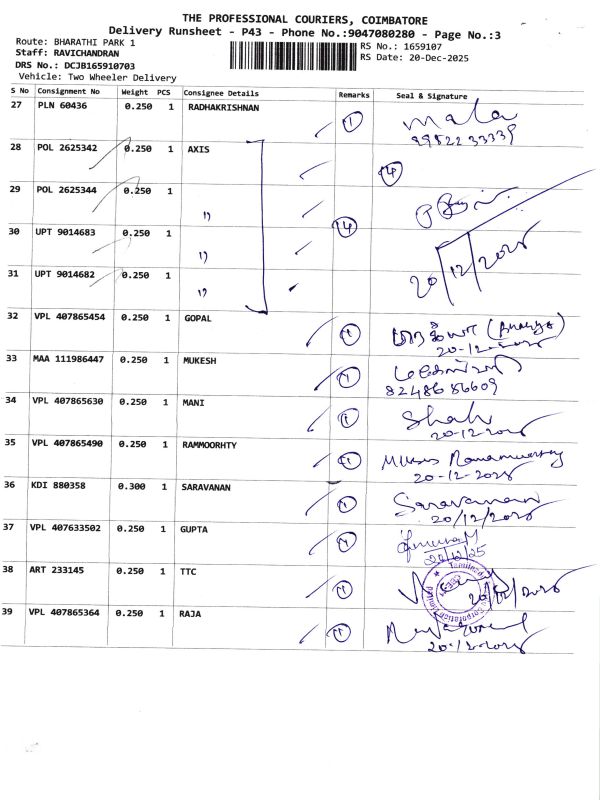 THE PROFESSIONAL COURIERS, COIMBATORE
Delivery Runsheet - P43 - Phone No.:9047080280 - Page No.:3
Route: BHARATHI PARK 1
RS No.: 1659107
Staff: RAVICHANDRAN
RS Date: 20-Dec-2025
DRS No.: DCJB165910703
Vehicle: Two Wheeler Delivery
S No Consignment No Weight PCS Consignee Details Remarks Seal & Signature
27 PLN 60436 0.250 1 RADHAKRISHNAN 1 Mala
28 POL 2625342 0.250 1 AXIS 4
29 POL 2625344 0.250 1 ,,
30 UPT 9014683 0.250 1 ,, 4
31 UPT 9014682 0.250 1 ,, 20/12/2025
32 VPL 407865454 0.250 1 GOPAL 1
20-12-2025
33 MAA 111986447 0.250 1 MUKESH 1
8248686609
34 VPL 407865630 0.250 1 MANI 1 Shah
20-12-2025
35 VPL 407865490 0.250 1 RAMMOORHTY 1
20-12-2025
36 KDI 880358 0.300 1 SARAVANAN 1 Saravanan
20/12/2025
37 VPL 407633502 0.250 1 GUPTA 1
20/12/25
38 ART 233145 0.250 1 TTC 1
20/12/2025
39 VPL 407865364 0.250 1 RAJA 1
20-12-2025